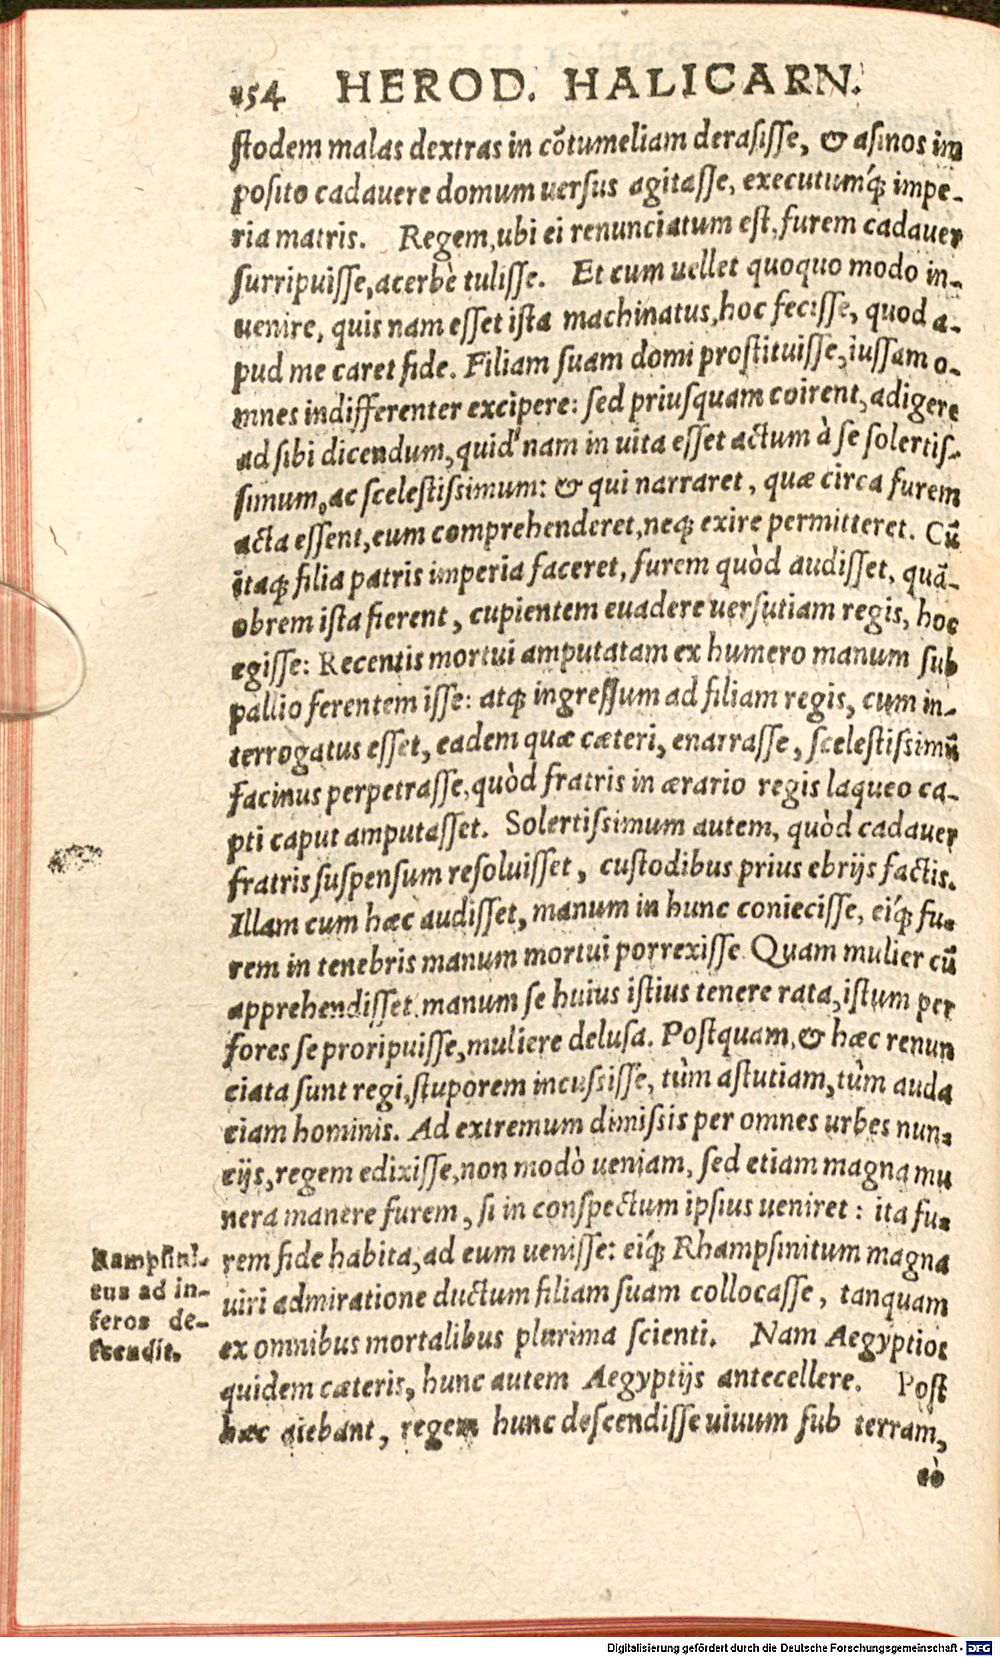 154 HEROD. HALICARN.
ſtodem malas dextras in cõtumeliam deraſiſſe, & aſinos im
poſito cadauere domum uerſus agitaſſe, executumq́; impe-
ria matris. Regem, ubi ei renunciatum eſt, furem cadauer
ſurripuiſſe, acerbè tuliſſe. Et cum uellet quoquo modo in-
uenire, quis nam eſſet iſta machinatus, hoc feciſſe, quod a-
pud me caret fide. Filiam ſuam domi proſtituiſſe, iuſſam o-
mnes indifferenter excipere: ſed priuſquam coirent, adigere
ad ſibi dicendum, quid'nam in uita eſſet actum à ſe ſolertiſ-
ſimum, ac ſceleſtiſsimum: & qui narraret, quæ circa furem
acta eſſent, eum comprehenderet, neq; exire permitteret. Cũ
itaq; filia patris imperia faceret, furem quòd audiſſet, quã-
obrem iſta fierent, cupientem euadere uerſutiam regis, hoc
egiſſe: Recentis mortui amputatam ex humero manum ſub
pallio ferentem iſſe: atq; ingreſſum ad filiam regis, cum in-
terrogatus eſſet, eadem quæ cæteri, enarraſſe, ſceleſtiſsimũ
facinus perpetraſſe, quòd fratris in ærario regis laqueo ca-
pti caput amputaſſet. Solertiſsimum autem, quòd cadauer
fratris ſuſpenſum reſoluiſſet, cuſtodibus prius ebrijs factis.
Illam cum hæc audiſſet, manum in hunc conieciſſe, eiq́; fu-
rem in tenebris manum mortui porrexiſſe. Quam mulier cũ
apprehendiſſet, manum ſe huius iſtius tenere rata, iſtum per
fores ſe proripuiſſe, muliere deluſa. Poſtquam, & hæc renun
ciata ſunt regi, ſtuporem incuſsiſſe, tùm aſtutiam, tùm auda
ciam hominis. Ad extremum dimiſsis per omnes urbes nun-
cijs, regem edixiſſe, non modò ueniam, ſed etiam magna mu
nera manere furem, ſi in conſpectum ipſius ueniret: ita fu-
rem fide habita, ad eum ueniſſe: eiq́; Rhampſinitum magna
uiri admiratione ductum filiam ſuam collocaſſe, tanquam
ex omnibus mortalibus plurima ſcienti. Nam Aegyptios
quidem cæteris, hunc autem Aegyptijs antecellere. Poſt
hæc aiebant, regem hunc deſcendiſſe uiuum ſub terram,
eò
Rampſini-
tus ad in-
feros de-
ſcendit.
Digitalisierung gefördert durch die Deutsche Forschungsgemeinschaft - DFG